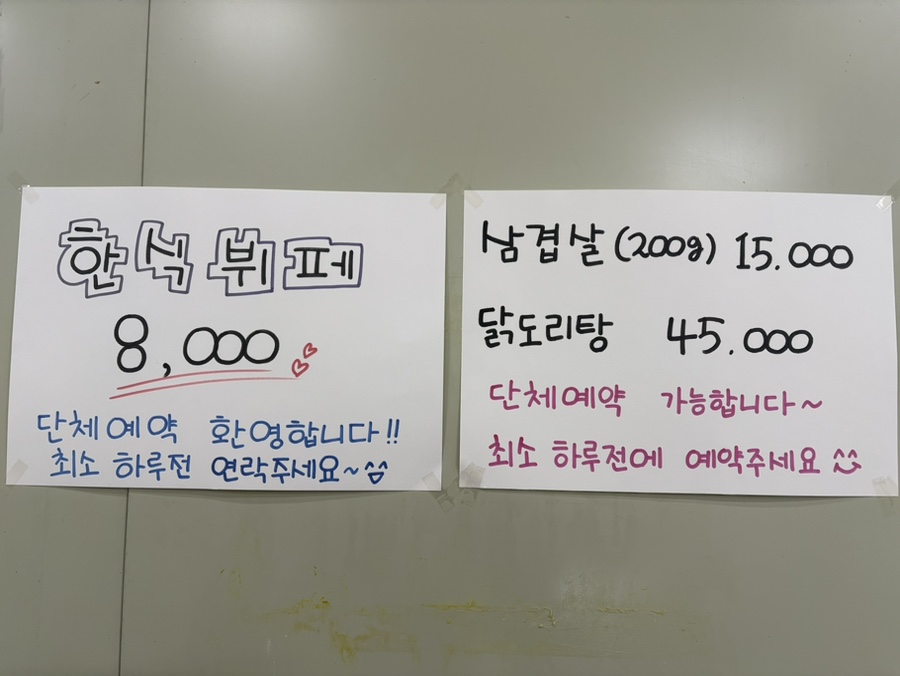 한식뷔페
8,000
단체예약 환영합니다!!
최소 하루전 연락주세요~
삼겹살(200g) 15.000
닭도리탕 45.000
단체예약 가능합니다~
최소 하루전에 예약주세요